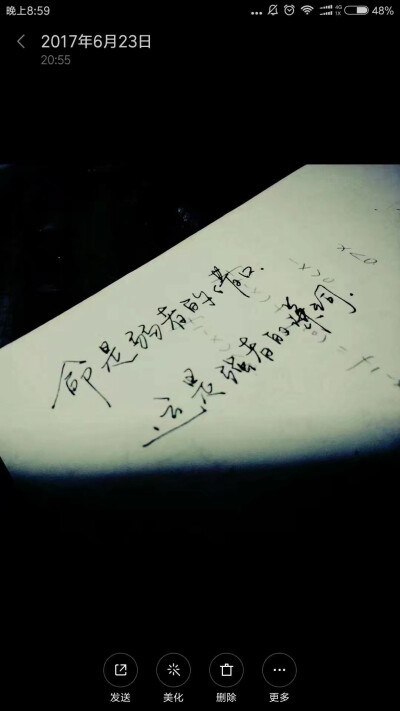 晚上8:59 4G 1X 48%
2017年6月23日
20:55
命是弱者的借口.
运是强者的谦词.
发送 美化 删除 更多